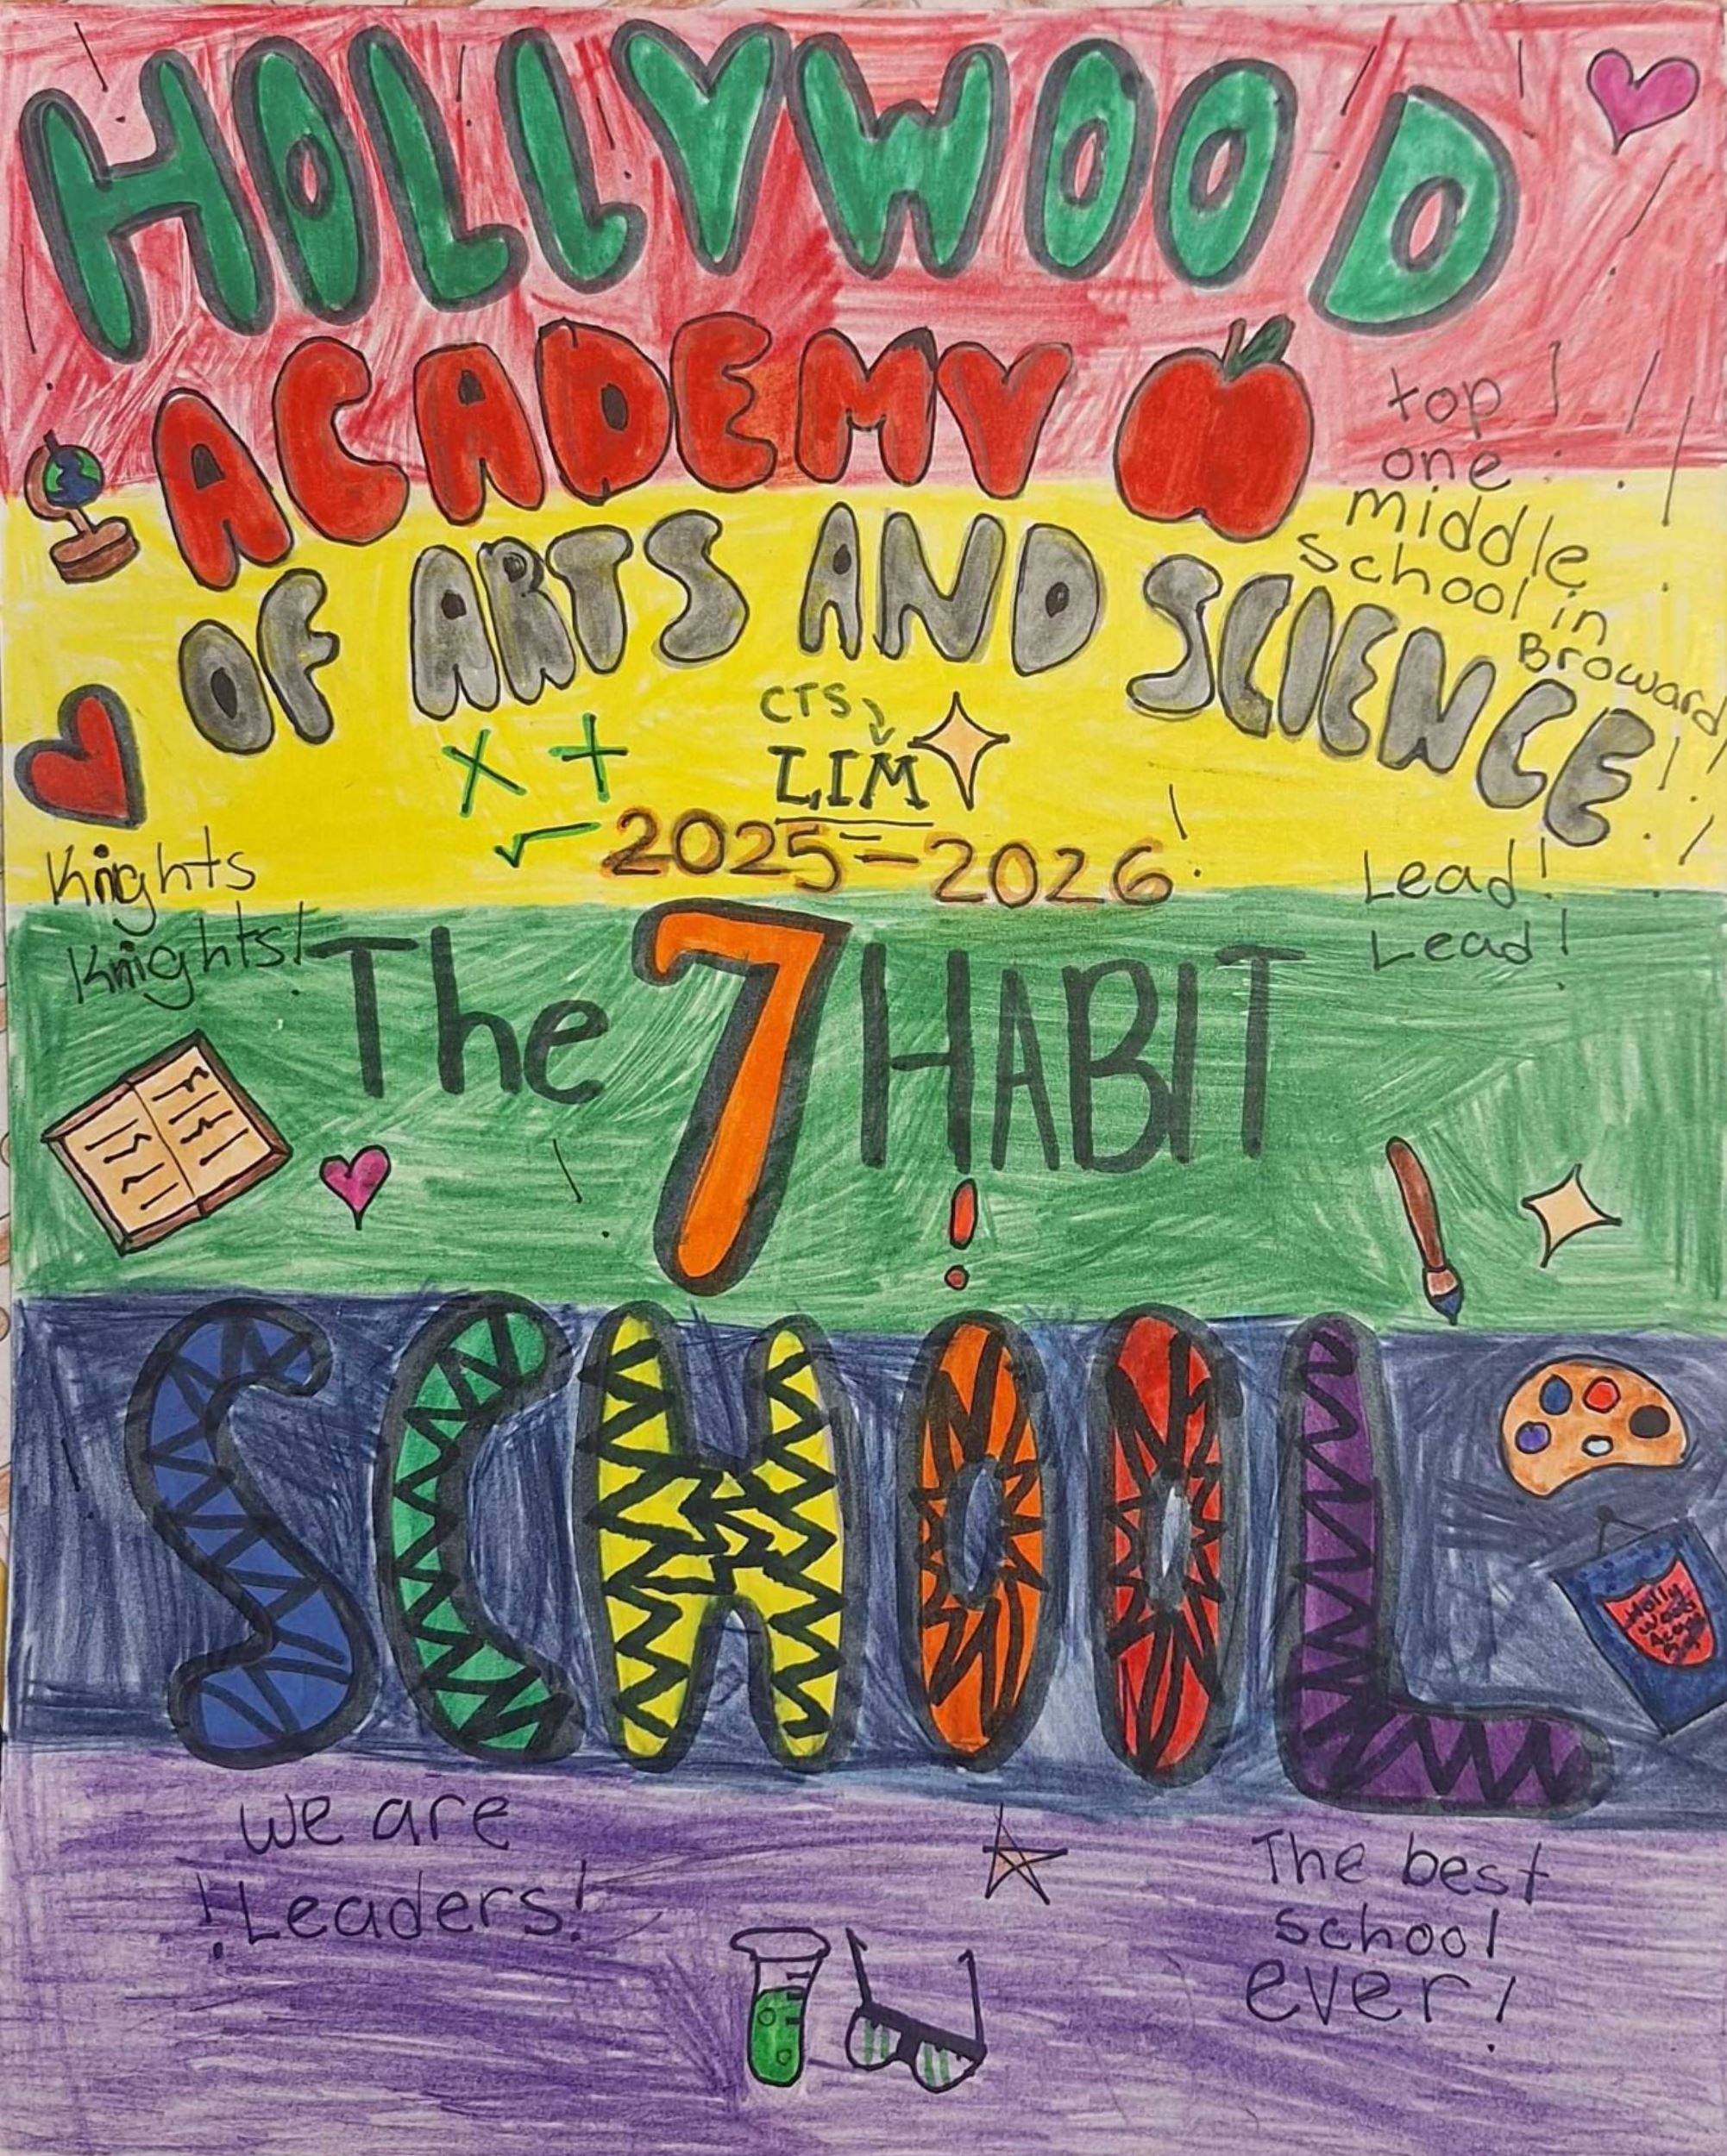 HOLLYWOOD
ACADEMY
OF ARTS AND SCIENCE!
top
one
middle
school in
Broward!
CTS
LIM
2025-2026
Knights
Knights!
Lead!
Lead!
The 7 HABIT
!
SCHOOL
Holly
wood
Acade
we are
Leaders!
The best
school
ever!